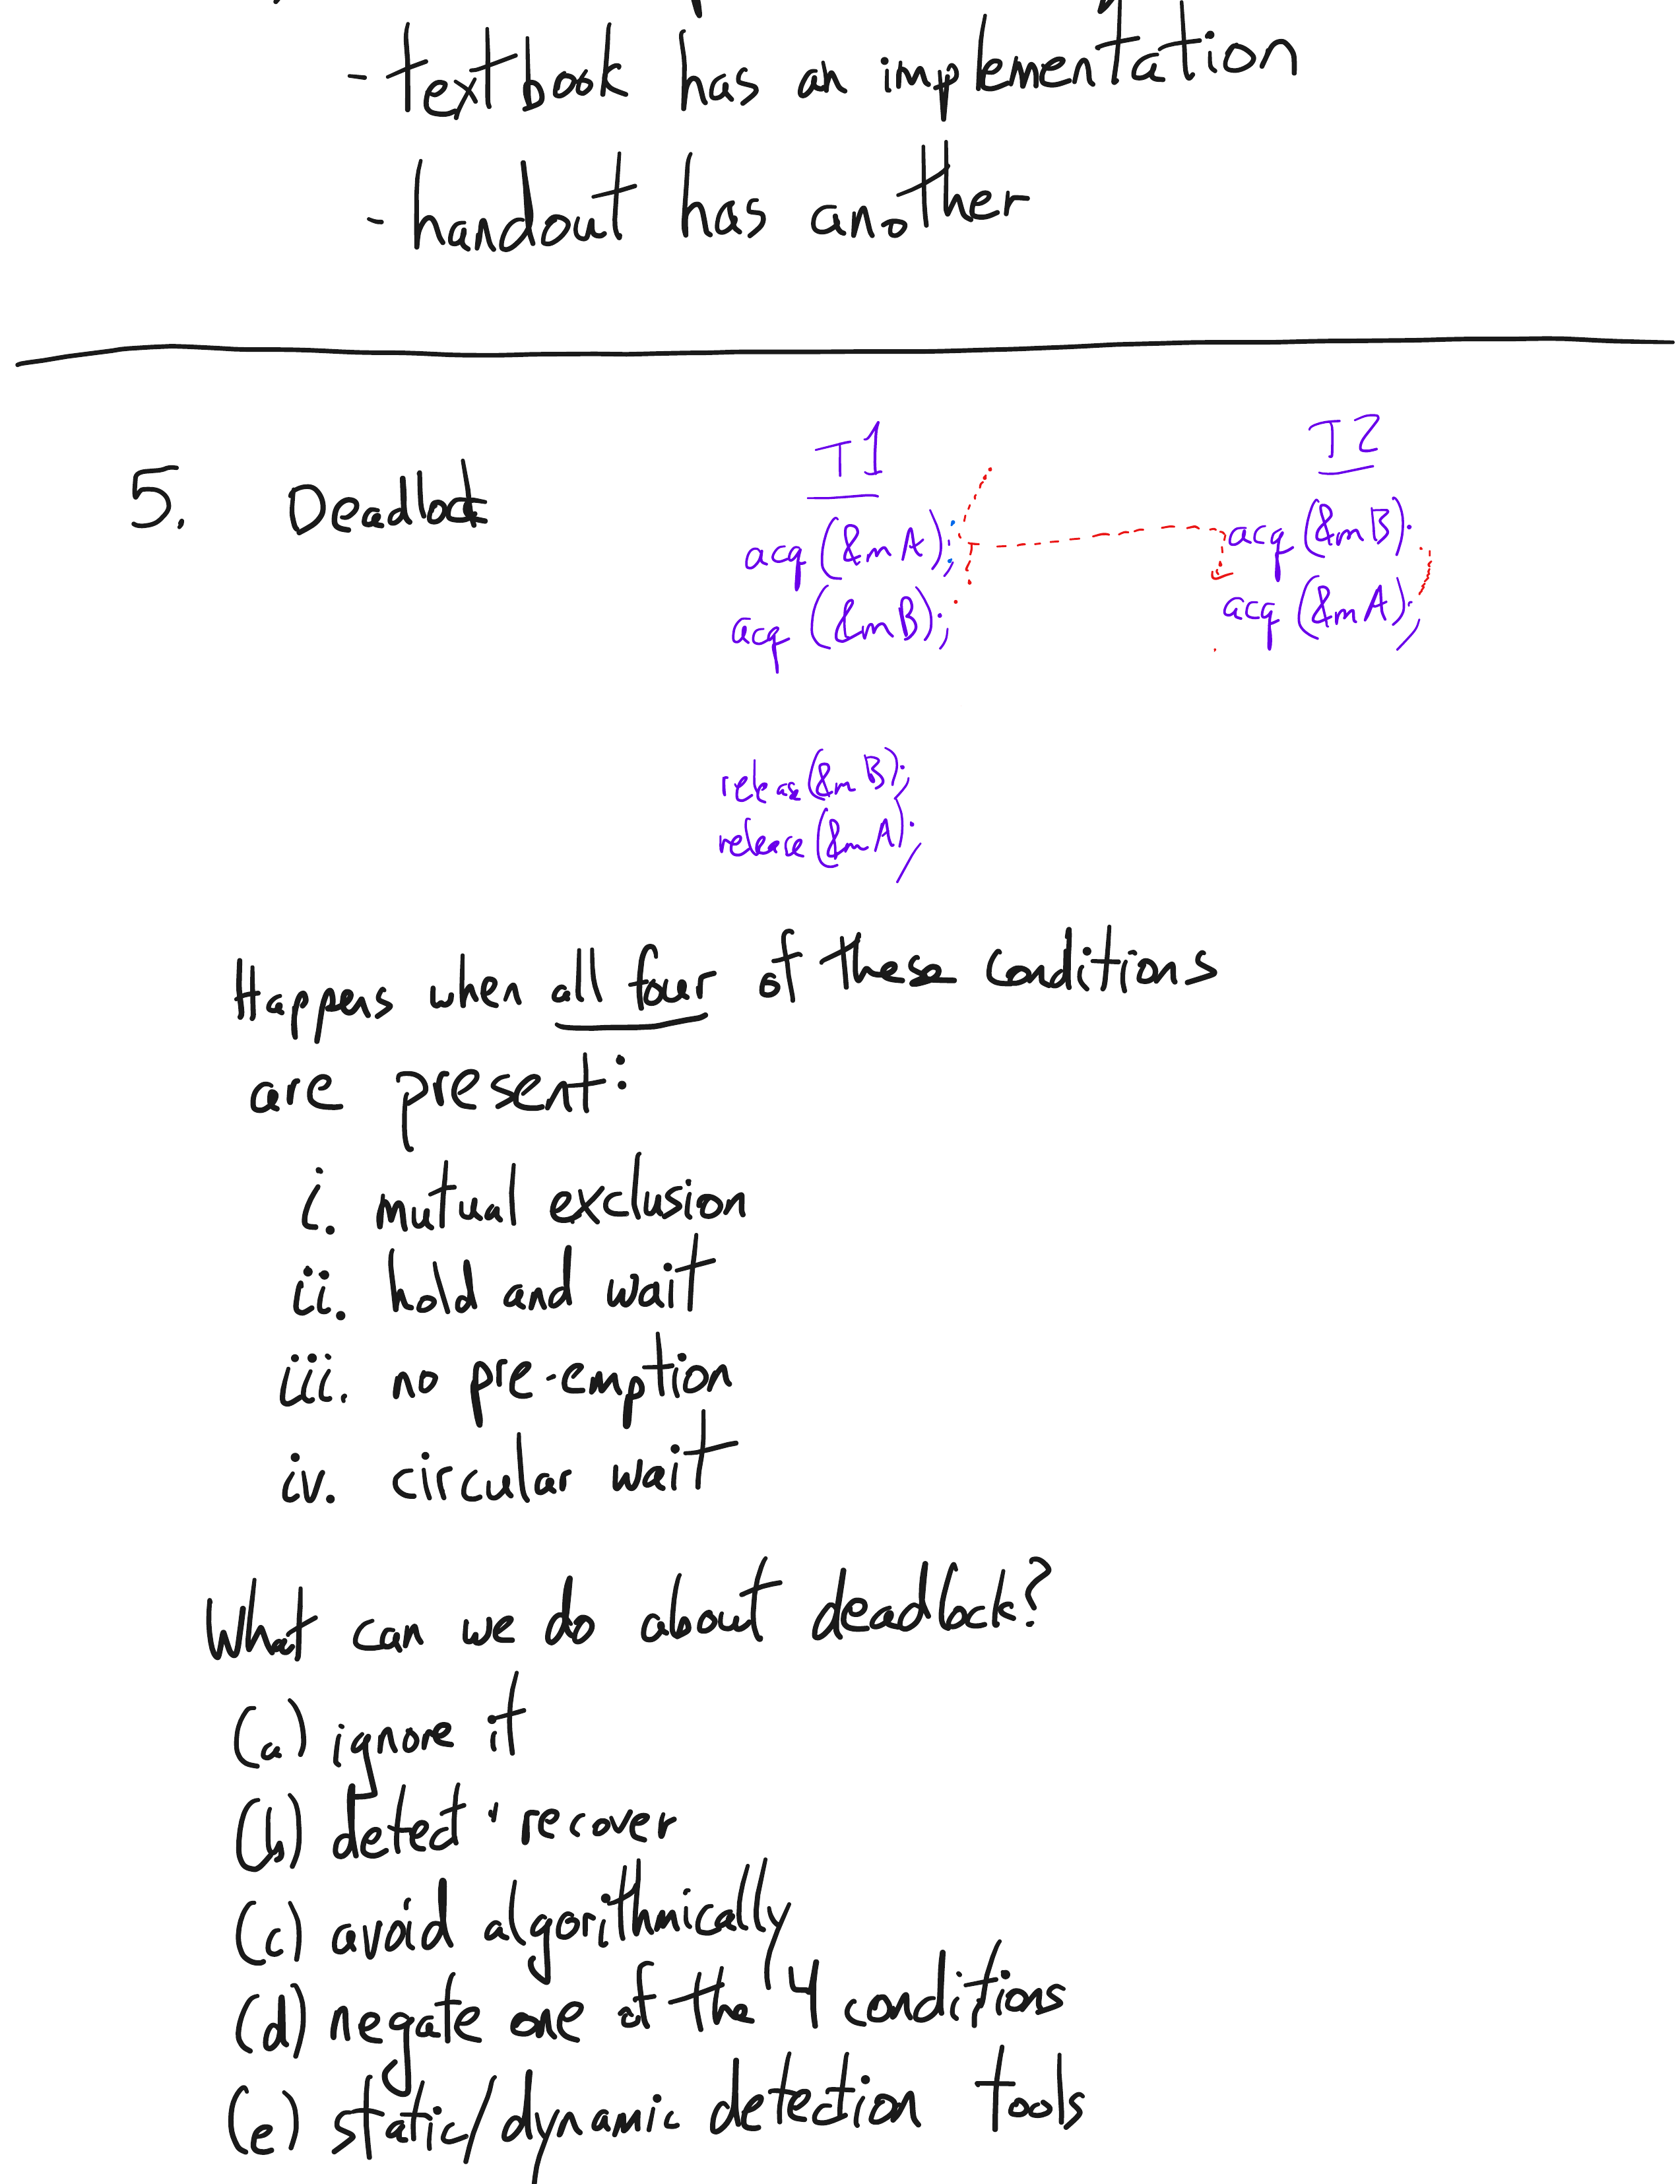 - textbook has an implementation
- handout has another
5. Deadlock
T1
acq (&mA);
acq (&mB);
release(&mB);
release(&mA);
T2
acq (&mB);
acq (&mA);
Happens when all four of these conditions
are present:
i. mutual exclusion
ii. hold and wait
iii. no pre-emption
iv. circular wait
What can we do about deadlock?
(a) ignore it
(b) detect + recover
(c) avoid algorithmically
(d) negate one of the 4 conditions
(e) static/dynamic detection tools